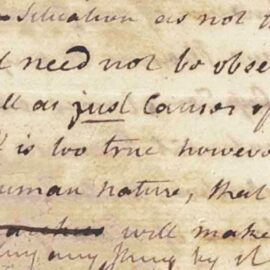 Situation as not
need not be obse
ll as just Causes of
is too true howeve
human nature, that
will make
any thing by it